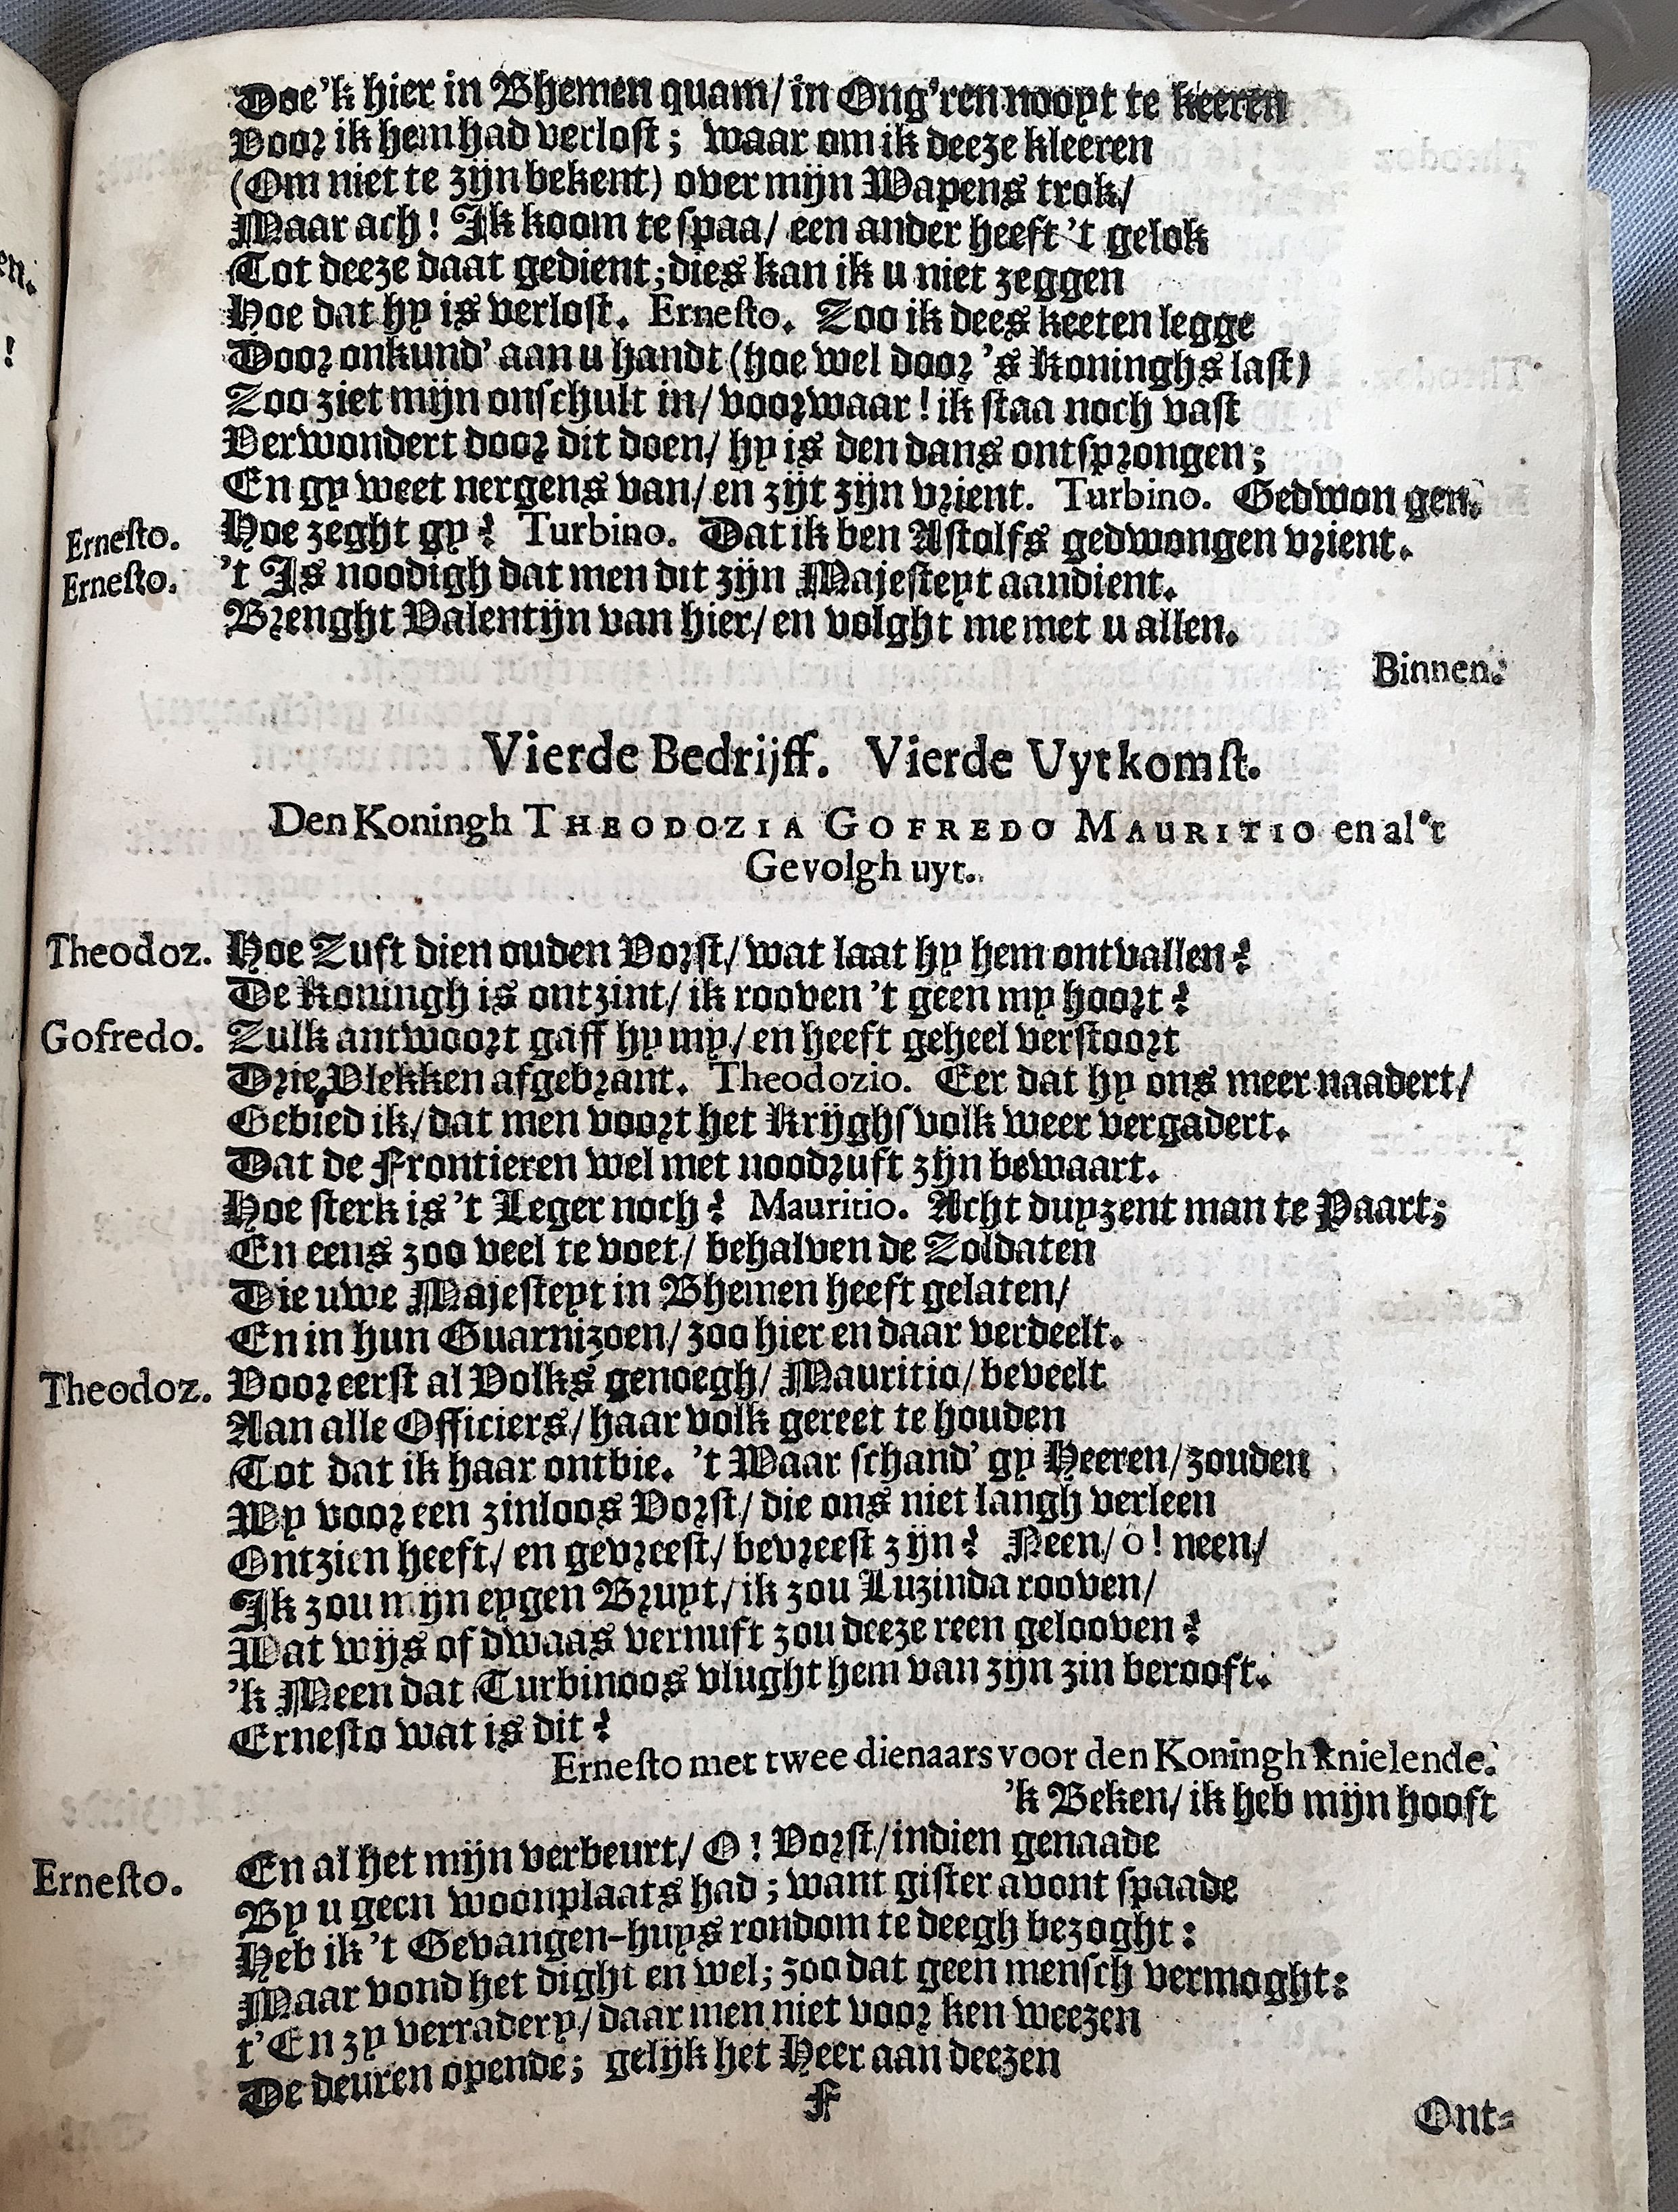 Doe'k hier in Bhemen quam/ in Ong'ren nooyt te keeren
Voor ik hem had verlost; waar om ik deeze kleeren
(Om niet te zijn bekent) over mijn Wapens trok/
Maar ach! Ik koom te spaa/ een ander heeft 't gelok
Tot deeze daat gedient; dies kan ik u niet zeggen
Hoe dat hy is verlost. Ernesto. Zoo ik dees keeten legge
Door onkund' aan u handt (hoe wel door 's Koninghs last)
Zoo ziet mijn onschult in/ voorwaar! ik staa noch vast
Verwondert door dit doen/ hy is den dans ontsprongen;
En gy weet nergens van/ en zijt zijn vrient. Turbino. Gedwon gen.
Ernesto. Hoe zeght gy? Turbino. Dat ik ben Astolfs gedwongen vrient.
Ernesto. 't Is noodigh dat men dit zijn Majesteyt aandient.
Brenght Valentijn van hier/ en volght me met u allen.
Binnen.
Vierde Bedrijff. Vierde Uytkomst.
Den Koningh THEODOZIA GOFREDO MAURITIO en al 't
Gevolgh uyt.
Theodoz. Hoe Zuft dien ouden Vorst/ wat laat hy hem ontvallen?
De Koningh is ontzint/ ik rooven 't geen my hoort?
Gofredo. Zulk antwoort gaff hy my/ en heeft geheel verstoort
Drie Vlekken afgebrant. Theodozio. Eer dat hy ons meer naadert/
Gebied ik/ dat men voort het Krijghsvolk weer vergadert.
Dat de Frontieren wel met noodruft zijn bewaart.
Hoe sterk is 't Leger noch? Mauritio. Acht duyzent man te Paart;
En eens zoo veel te voet/ behalven de Zoldaten
Die uwe Majesteyt in Bhemen heeft gelaten/
En in hun Guarnizoen/ zoo hier en daar verdeelt.
Theodoz. Voor eerst al Volks genoegh/ Mauritio/ beveelt
Aan alle Officiers/ haar volk gereet te houden
Tot dat ik haar ontbie. 't Waar schand' gy Heeren/ zouden
Wy voor een zinloos Vorst/ die ons niet langh verleen
Ontzien heeft/ en gevreest/ bevreest zijn? Neen/ o! neen/
Ik zou mijn eygen Bruyt/ ik zou Luzinda rooven/
Wat wijs of dwaas vernuft zou deeze reen gelooven?
'k Meen dat Turbinoos vlught hem van zijn zin berooft.
Ernesto wat is dit?
Ernesto met twee dienaars voor den Koningh knielende.
'k Beken/ ik heb mijn hooft
Ernesto. En al het mijn verbeurt/ O! Vorst/ indien genaade
By u geen woonplaats had; want gister avont spaade
Heb ik 't Gevangen-huys rondom te deegh bezoght:
Maar vond het dight en wel; zoo dat geen mensch vermoght:
t'En zy verradery/ daar men niet voor ken weezen
De deuren opende; gelijk het Heer aan deezen
F
Ont-